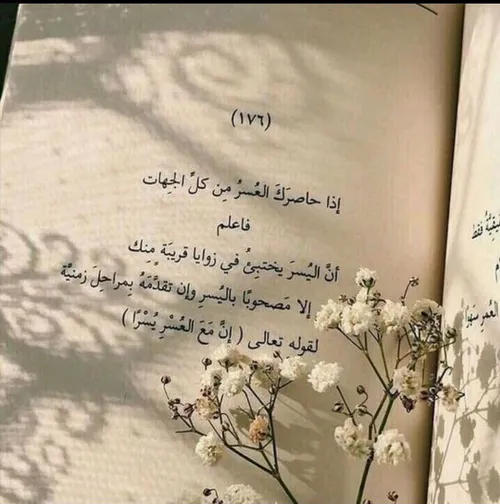 (١٧٦)
إذا حاصرَكَ العُسرُ مِن كلِّ الجِهات
فاعلم
أنَّ اليُسرَ يختبِئُ في زوايا قريبَة مِنك
إلا مَصحوبًا باليُسرِ وإن تقدَّمَهُ بِمراحِلَ زمنيَّة
لقوله تعالى ( إنَّ مَعَ العُسْرِ يُسْرًا )
فقط
العُمر سَهوا